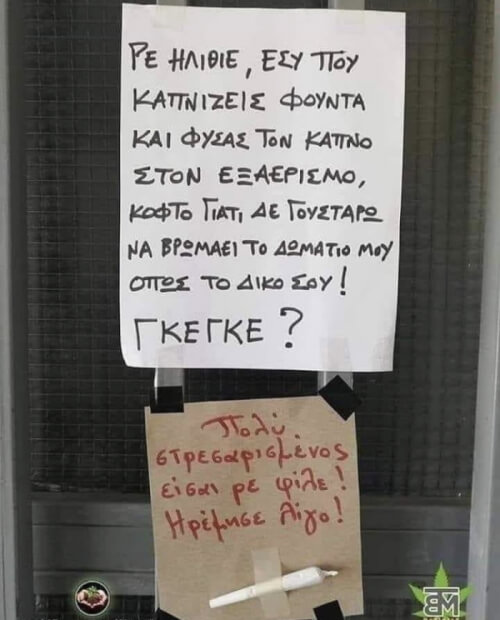 ΡΕ ΗΛΙΘΙΕ, ΕΣΥ ΠΟΥ
ΚΑΠΝΙΖΕΙΣ ΦΟΥΝΤΑ
ΚΑΙ ΦΥΣΑΣ ΤΟΝ ΚΑΠΝΟ
ΣΤΟΝ ΕΞΑΕΡΙΣΜΟ,
ΚΟΦΤΟ ΓΙΑΤΙ ΔΕ ΓΟΥΣΤΑΡΩ
ΝΑ ΒΡΩΜΑΕΙ ΤΟ ΔΩΜΑΤΙΟ ΜΟΥ
ΟΠΩΣ ΤΟ ΔΙΚΟ ΣΟΥ!
ΓΚΕΓΚΕ?
Πολύ
στρεσαρισμένος
είσαι ρε φίλε!
Ηρέμησε λίγο!
BM